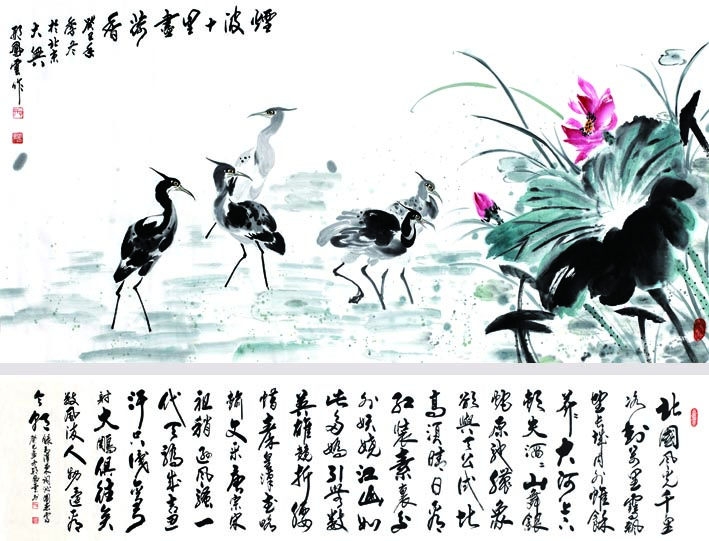 煙波十里盡荷香
癸巳年
季冬
於北京
大興
北國風光千里
冰封万里雪飄
望長城內外惟餘
莽莽大河上下
頓失滔滔山舞銀
蛇原馳蠟象
欲與天公試比
高須晴日看
紅裝素裹分
外妖嬈江山如
此多嬌引無數
英雄競折腰
惜秦皇漢武略
輸文采唐宗宋
祖稍遜風騷一
代天驕成吉思
汗只識彎弓
射大鵰俱往矣
數風流人物還看
今朝 錄毛澤東詞沁園春雪